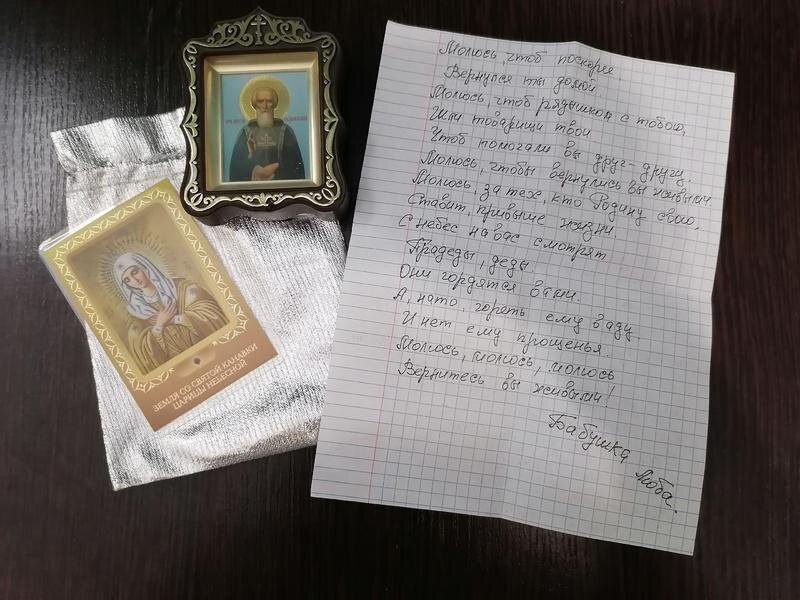 ЗЕМЛЯ СО СВЯТОЙ КАНАВКИ
ЦАРИЦЫ НЕБЕСНОЙ
Молюсь, чтоб поскорее
Вернулся ты домой
Молюсь, чтоб рядышком с тобою,
Шли товарищи твои
Чтоб помогали вы друг-другу.
Молюсь, чтобы вернулись вы живыми
Молюсь, за тех, кто Родину свою,
Ставит, превыше жизни
С небес на вас смотрят
Прадеды, деды
Они гордятся вами.
А, нато, гореть ему в аду
И нет ему прощенья.
Молюсь, молюсь, молюсь
Вернитесь вы живыми!
Бабушка Люба.